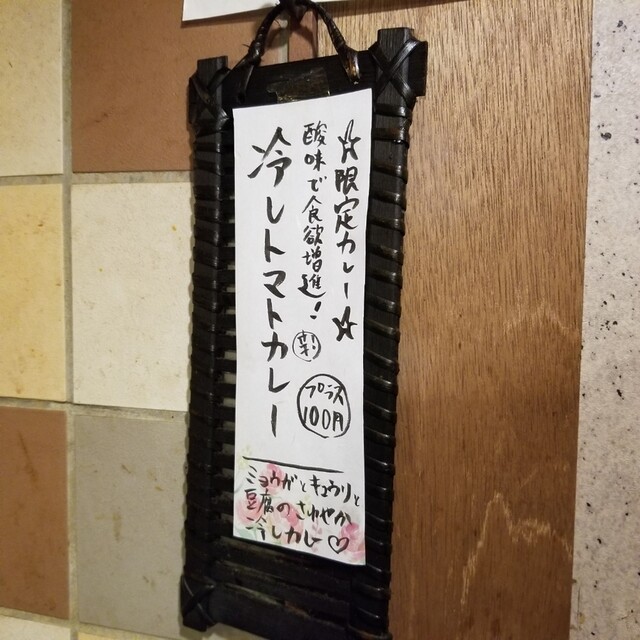 ☆限定カレー☆
酸味で食欲増進!
冷しトマトカレー
プラス
100円
ミョウガとキュウリと
豆腐のさわやか
冷しカレー♡